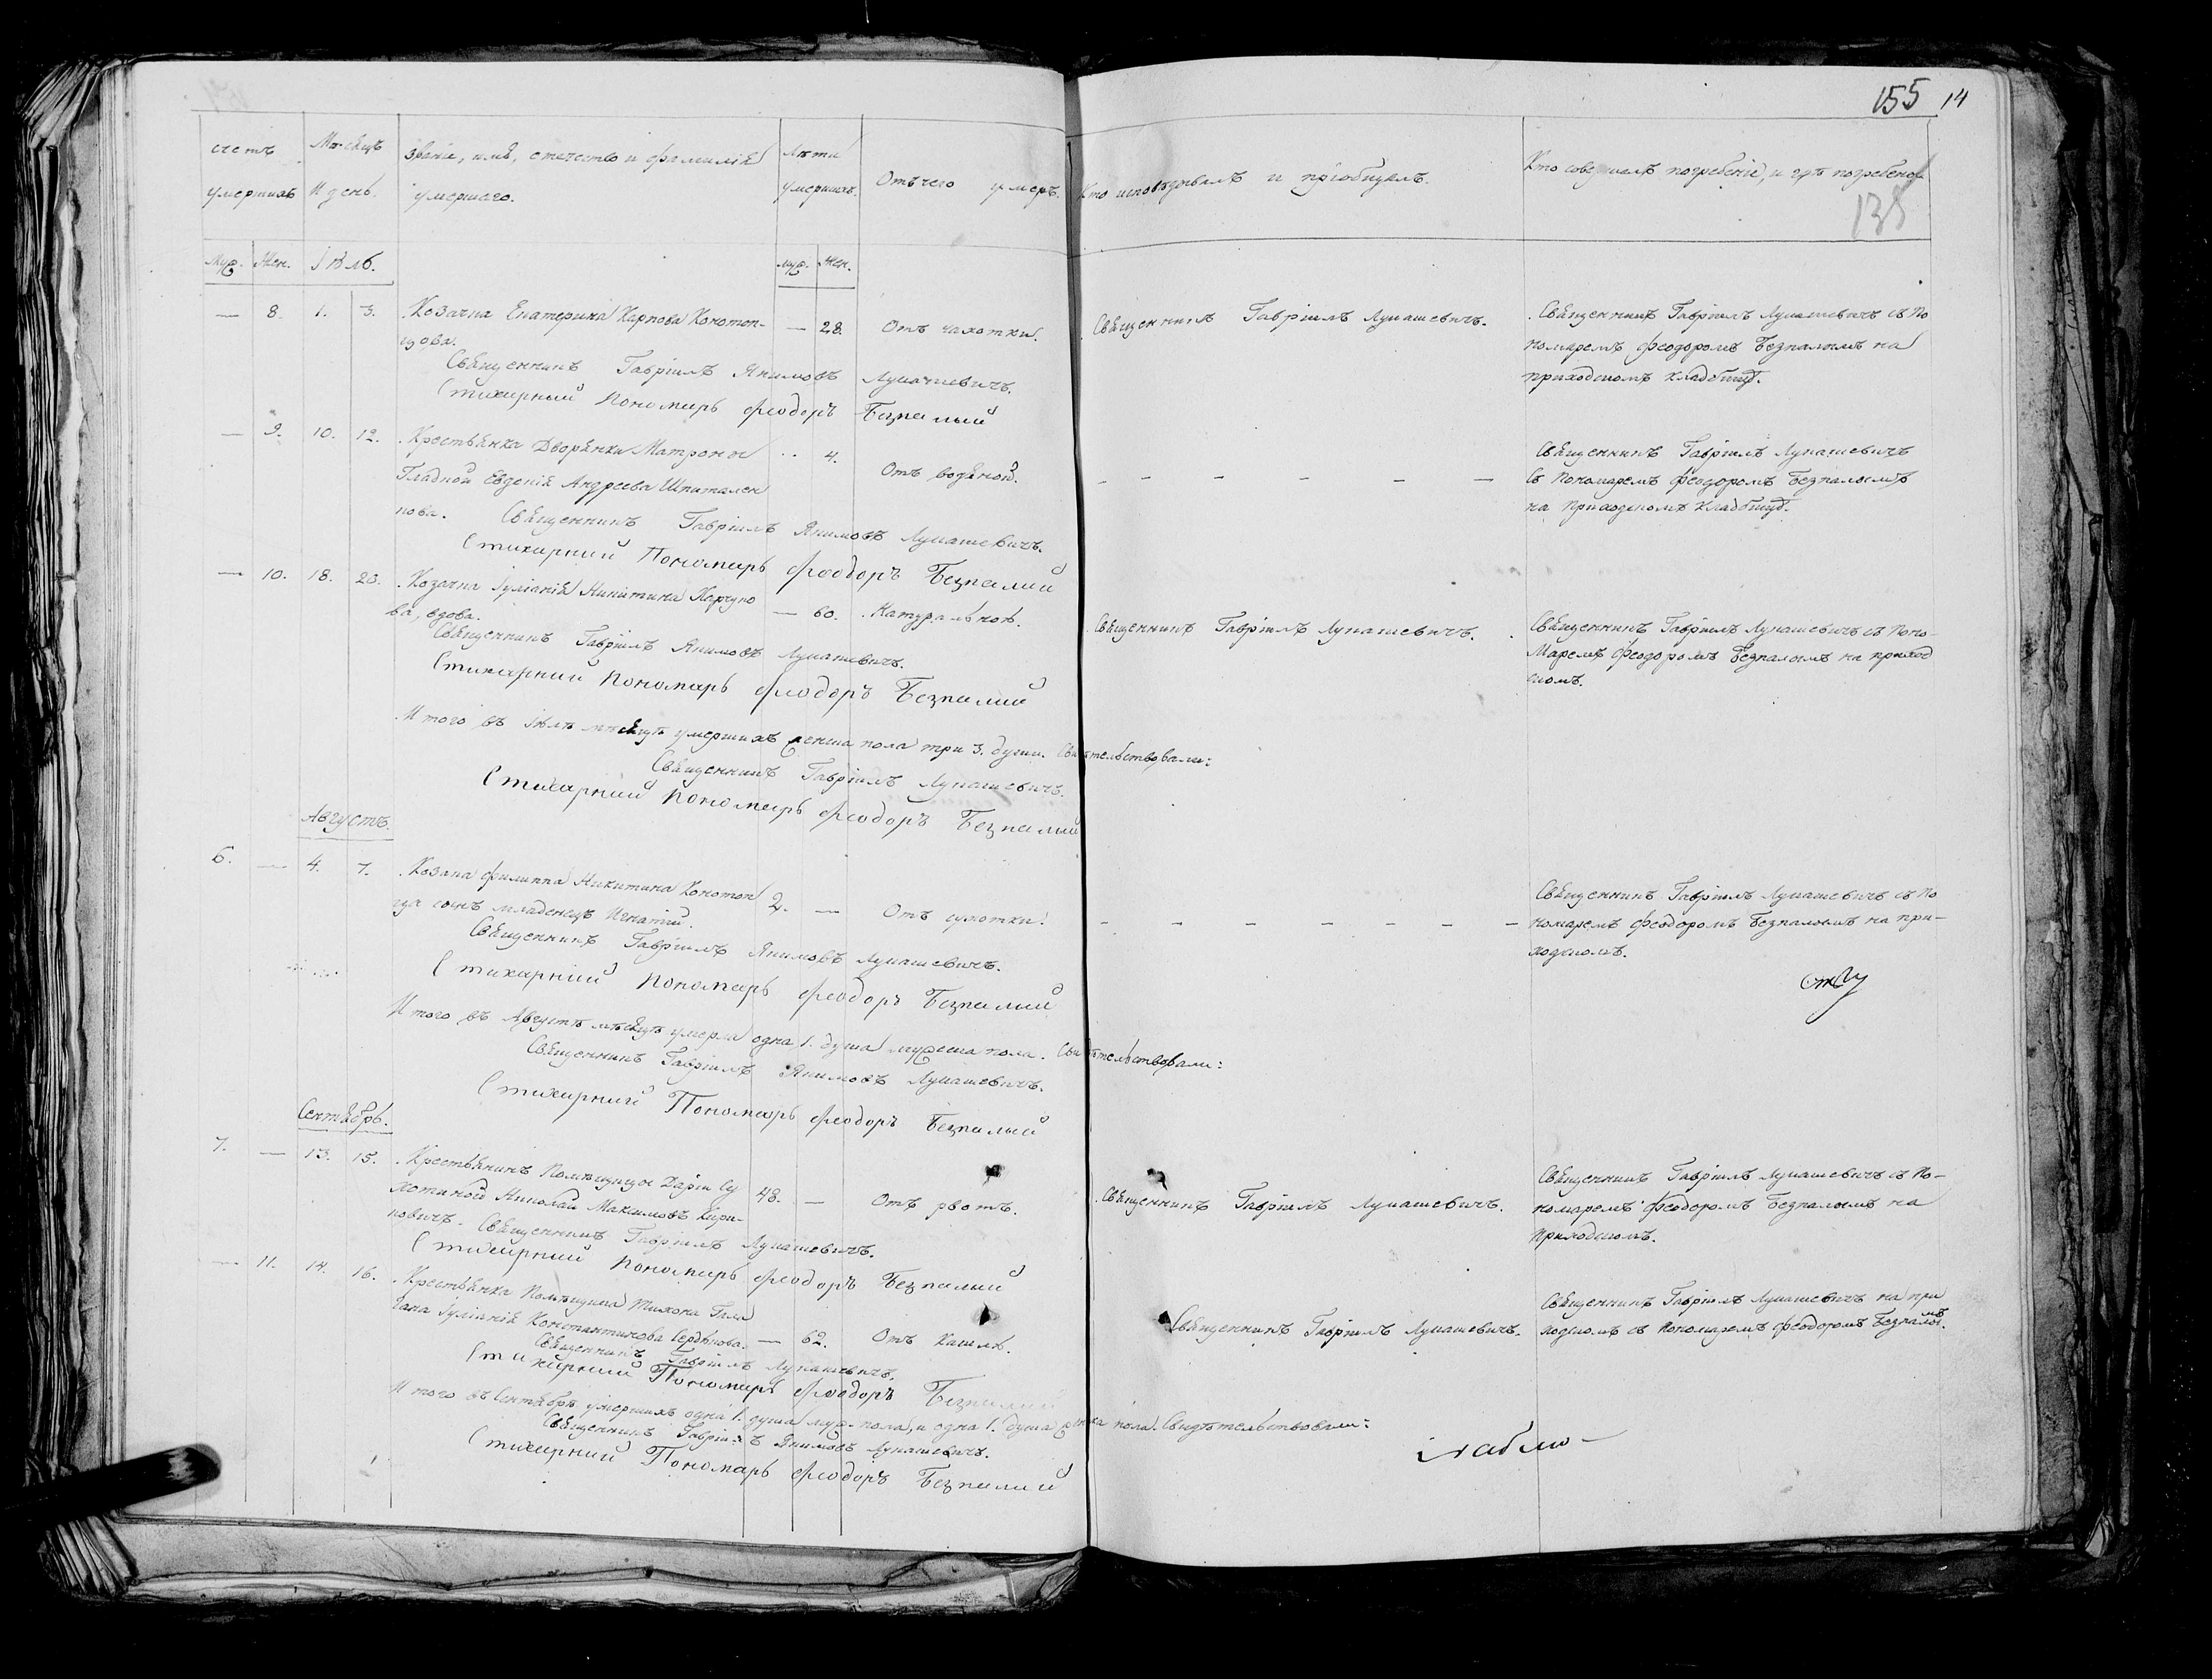 155 14
счетъ умершихъ
Мѣсяцъ и день.
званіе, имя, отечество и фамилія умершаго.
Лѣта умершихъ.
Отъ чего умеръ.
Кто исповѣдывалъ и пріобщалъ.
Кто совершалъ погребеніе, и гдѣ погребенъ
138
Муж. Жен. Іюль. муж. Жен.
— 8. 1. 3. Козачка Екатерина Карпова Конотоп-
цова. — 28. Отъ чахотки. Священникъ Гавріилъ Лукашевичъ.
Священникъ Гавріилъ Лукашевичъ съ По
номаремъ Феодоромъ Безпалымъ на
приходскомъ кладбищѣ.
Священникъ Гавріилъ Якимовъ Лукашевичъ.
Стихарный Пономарь Феодоръ Безпалый
— 9. 10. 12. Крестьянка Дворянки Матроны .. 4. Отъ водяной. — — — — — —
Гладкой Евгенія Андреева Шпитален
кова. Священникъ Гавріилъ Якимовъ Лукашевичъ.
Священникъ Гавріилъ Лукашевичъ
съ Пономаремъ Феодоромъ Безпалымъ
на приходскомъ кладбищѣ.
Стихарный Пономарь Феодоръ Безпалый
— 10. 18. 20. Козачка Іуліанія Никитина
ва, вдова. — 60. Натурально. Священникъ Гавріилъ Лукашевичъ.
Священникъ Гавріилъ Лукашевичъ съ Поно-
Маремъ Феодоромъ Безпалымъ на приход
скомъ.
Священникъ Гавріилъ Якимовъ Лукашевичъ.
Стихарный Пономарь Феодоръ Безпалый
Итого въ Іюлѣ мѣсяцѣ умершихъ женска пола три 3. души. Свидѣтельствовали:
Священникъ Гавріилъ Лукашевичъ.
Стихарный Пономарь Феодоръ Безпалый
Августъ.
6. — 4. 7. Козака Филиппа Никитина Конотоп
ца сынъ младенецъ Игнатій. 2. — Отъ сухотки. — — — — — — —
Священникъ Гавріилъ Лукашевичъ съ По
номаремъ Феодоромъ Безпалымъ на при-
ходскомъ.
Священникъ Гавріилъ Якимовъ Лукашевичъ.
Стихарный Пономарь Феодоръ Безпалый
Итого въ Августѣ мѣсяцѣ умерла одна 1. душа мужеска пола. Свидѣтельствовали:
Священникъ Гавріилъ Якимовъ Лукашевичъ.
Стихарный Пономарь Феодоръ Безпалый
Сентябрь.
7. — 13. 15. Крестьянинъ Помѣщицы Даріи Су
хотиной Николай Максимовъ Кири-
ковичъ. 48. — Отъ рвотъ. Священникъ Гавріилъ Лукашевичъ.
Священникъ Гавріилъ Лукашевичъ съ По-
номаремъ Феодоромъ Безпалымъ на
приходскомъ.
Священникъ Гавріилъ Лукашевичъ.
Стихарный Пономарь Феодоръ Безпалый
— 11. 14. 16. Крестьянка Помѣщика Тихона Гала
гана Іуліанія Константинова — 62. Отъ кашля. Священникъ Гавріилъ Лукашевичъ.
Священникъ Гавріилъ Лукашевичъ на при
ходскомъ съ Пономаремъ Феодоромъ Безпалымъ.
Священникъ Гавріилъ Лукашевичъ.
Стихарный Пономарь Феодоръ Безпалый
Итого въ Сентябрѣ умершихъ одна 1. душа муж. пола, и одна 1. душа женска пола. Свидѣтельствовали:
Священникъ Гавріилъ Якимовъ Лукашевичъ.
Стихарный Пономарь Феодоръ Безпалый